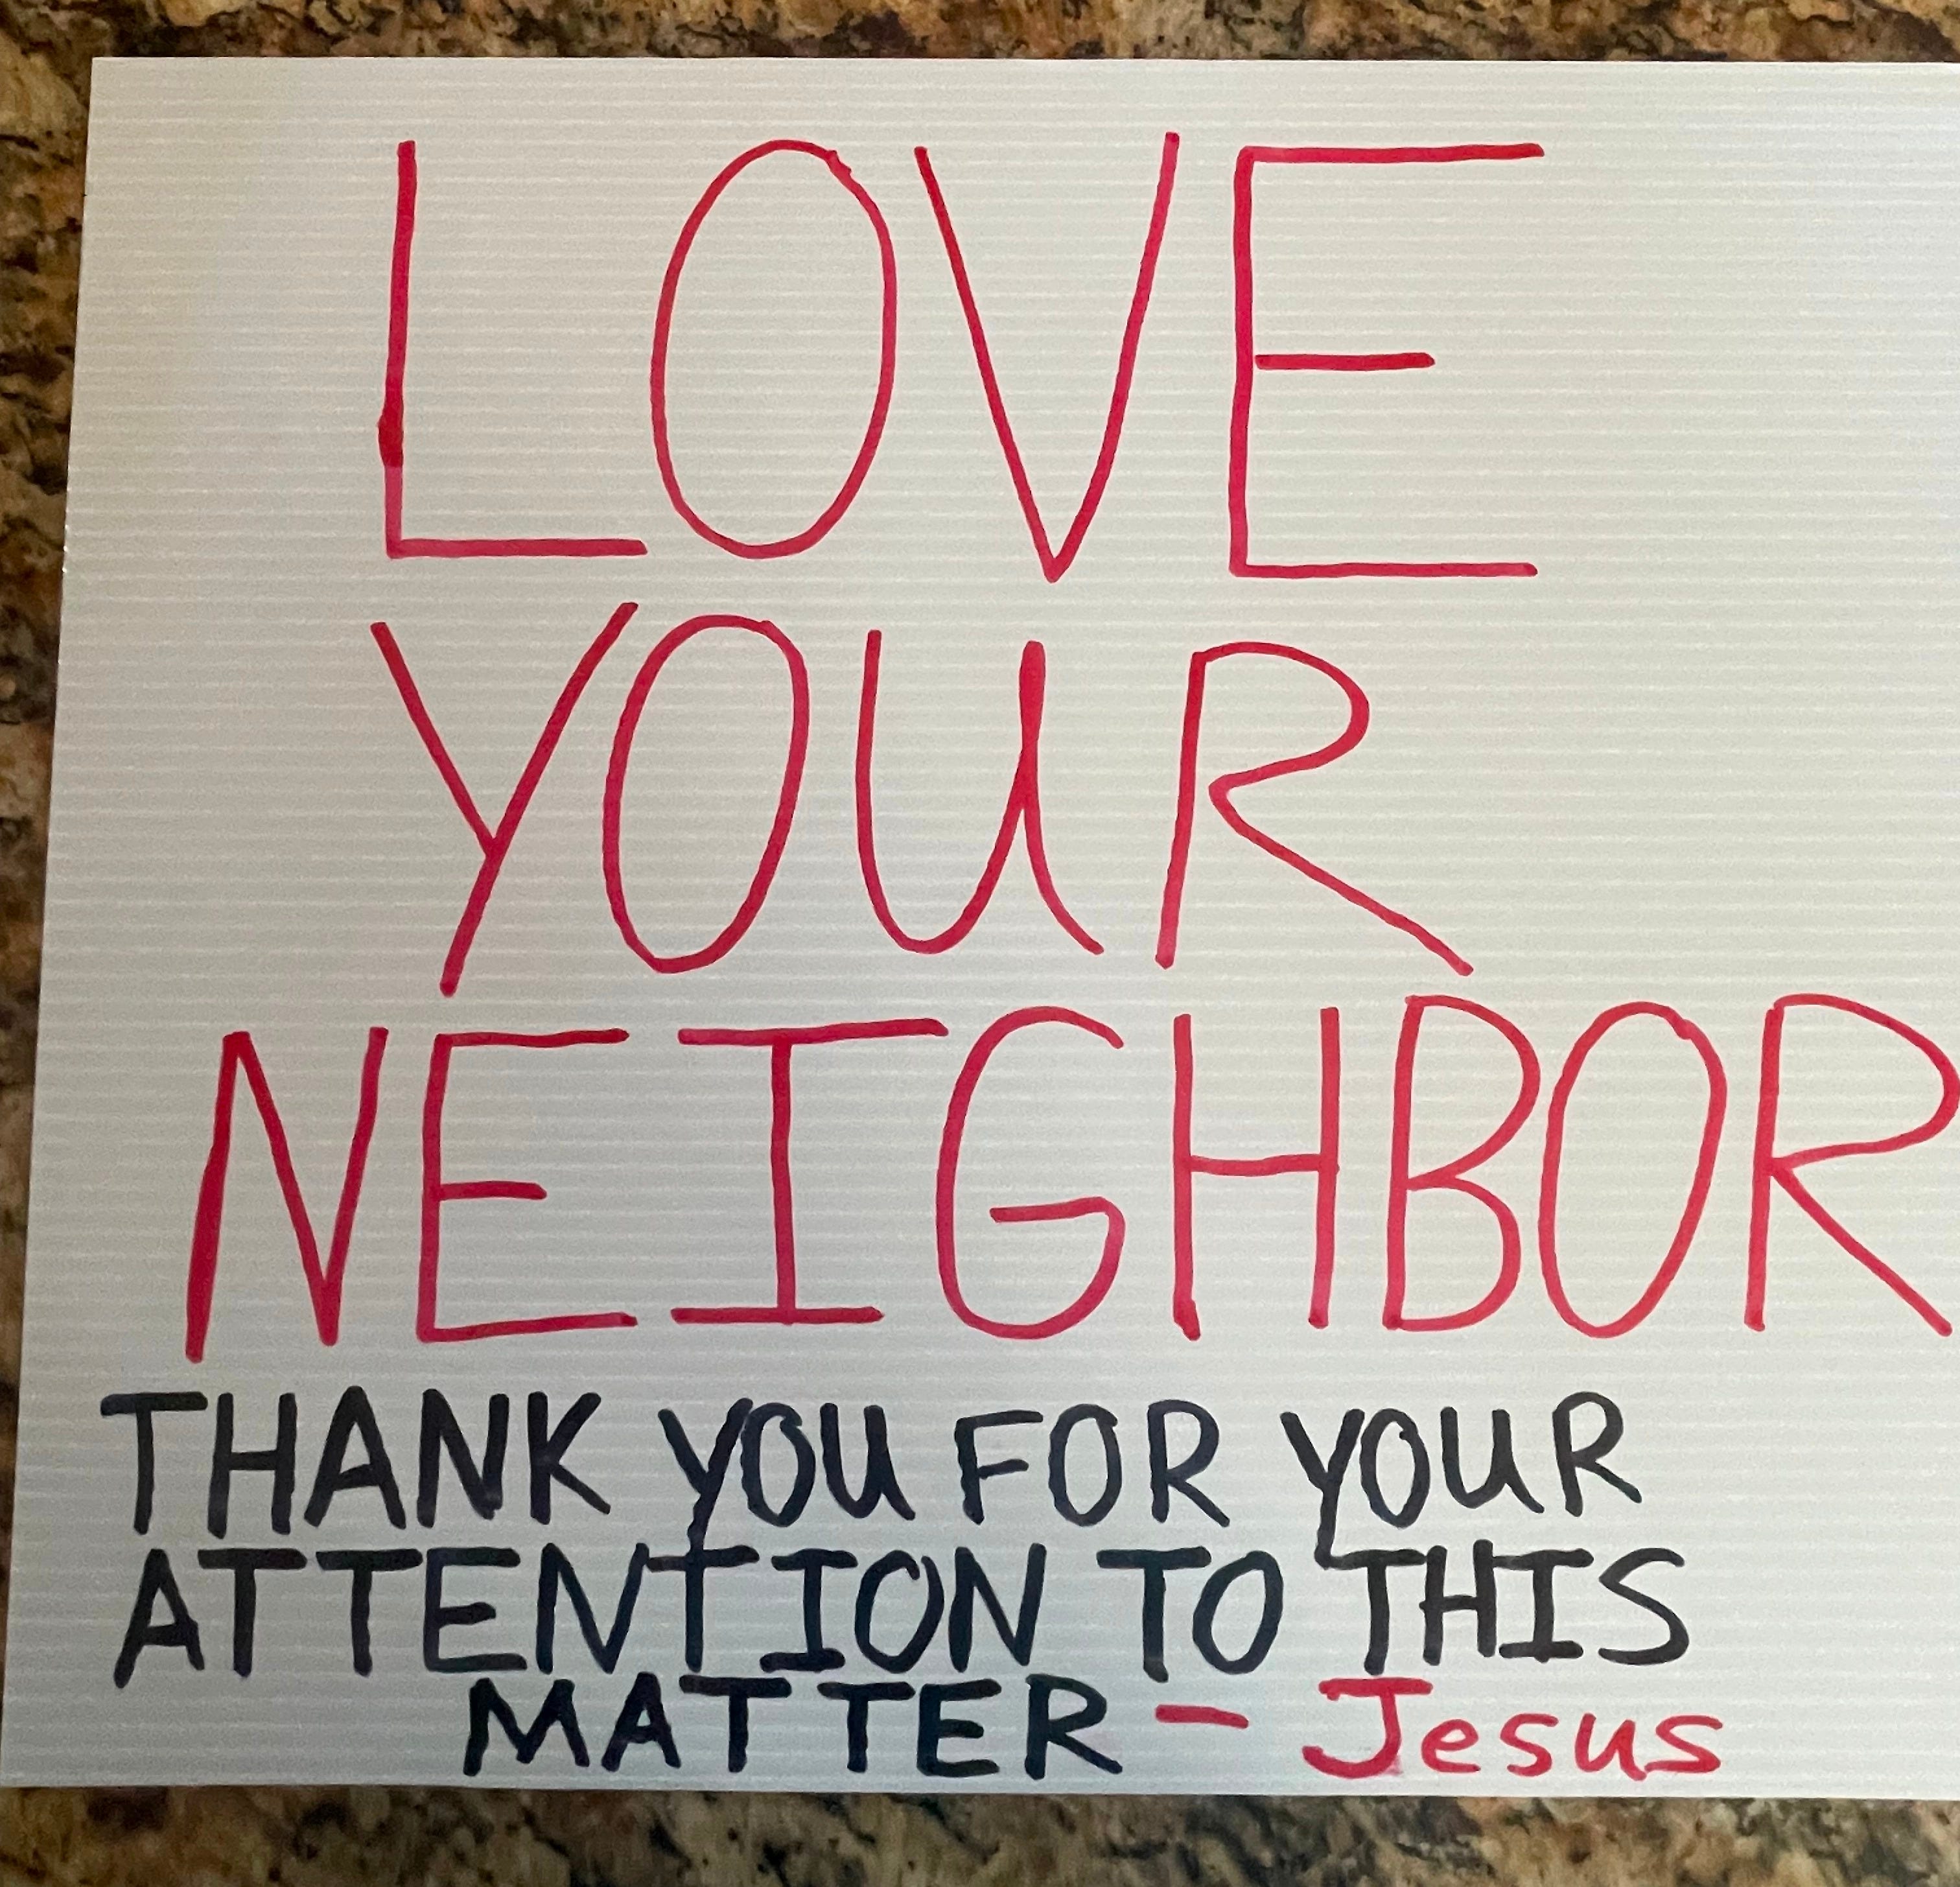 LOVE
YOUR
NEIGHBOR
THANK YOU FOR YOUR
ATTENTION TO THIS
MATTER - Jesus